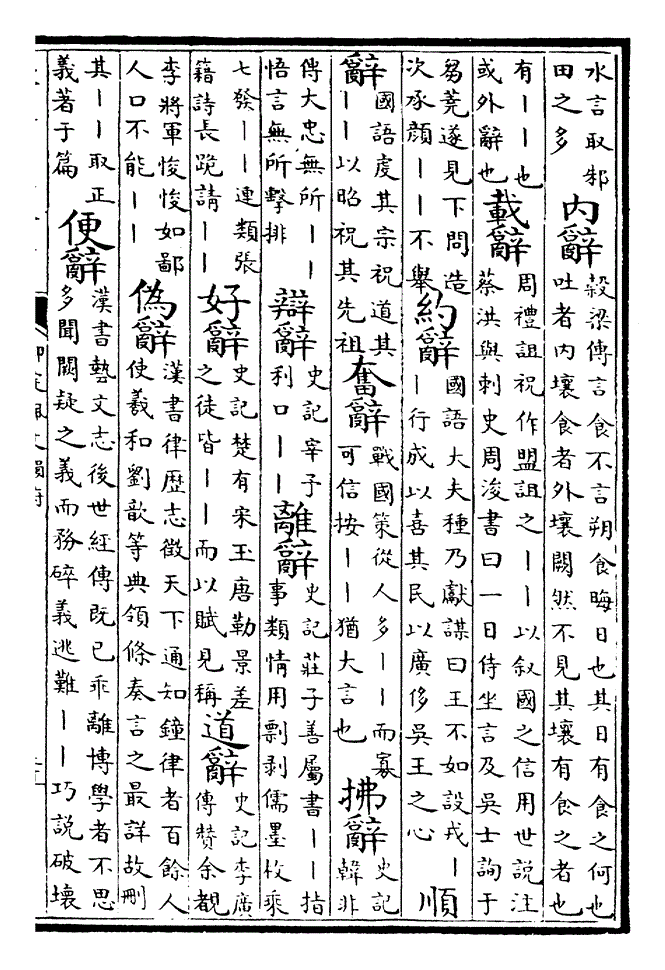 水言取邪
田之多
內辭
榖梁傳言食不言朔食晦日也其日有食之何也
吐者內壞食者外壞闕然不見其壞有食之者也
有丨丨也
或外辭也
載辭
周禮詛祝作盟詛之丨丨以叙國之信用世說注
蔡洪與刺史周浚書曰一日侍坐言及吳士詢于
芻蕘遂見下問造
次承顔丨丨不舉
約辭
國語大夫種乃獻謀曰王不如設戎丨
丨行成以喜其民以廣侈吳王之心
順
辭
國語虔其宗祝道其
丨丨以昭祝其先祖
奮辭
戰國策從人多丨丨而寡
可信按丨丨猶大言也
拂辭
史記
韓非
傳大忠無所丨丨
悟言無所擊排
辯辭
史記宰子
利口丨丨
離辭
史記莊子善屬書丨丨指
事類情用剽剥儒墨枚乘
七發丨丨連類張
籍詩長跪請丨丨
好辭
史記楚有宋玉唐勒景差
之徒皆丨丨而以賦見稱
道辭
史記李廣
傳贊余覩
李將軍悛悛如鄙
人口不能丨丨
偽辭
漢書律歷志徵天下通知鐘律者百餘人
使羲和劉歆等典領條奏言之最詳故刪
其丨丨取正
義著于篇
便辭
漢書藝文志後世經傳既已乖離博學者不思
多聞闕疑之義而務碎義逃難丨丨巧說破壞